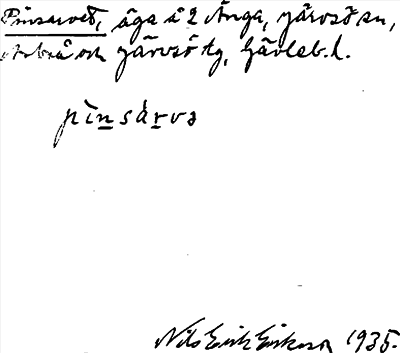 Pinsarvet, äga å 2 Änga, Järvsö sn,
Arbrå och Järvsö tg, Gävleb. l.
pìnsárvə
Nils Erik Eriksson 1935.